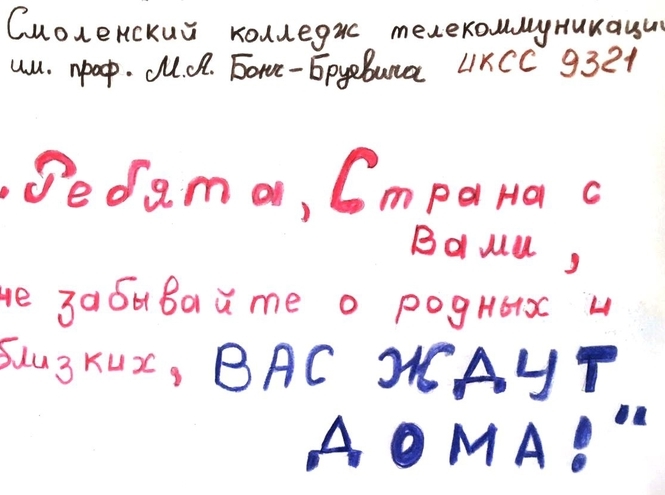 Смоленский колледж телекоммуникаци
им. проф. М.А. Бонч-Бруевича ИКСС 9321
Ребята, Страна с
Вами,
не забывайте о родных и
близких, ВАС ЖДУТ
ДОМА!"